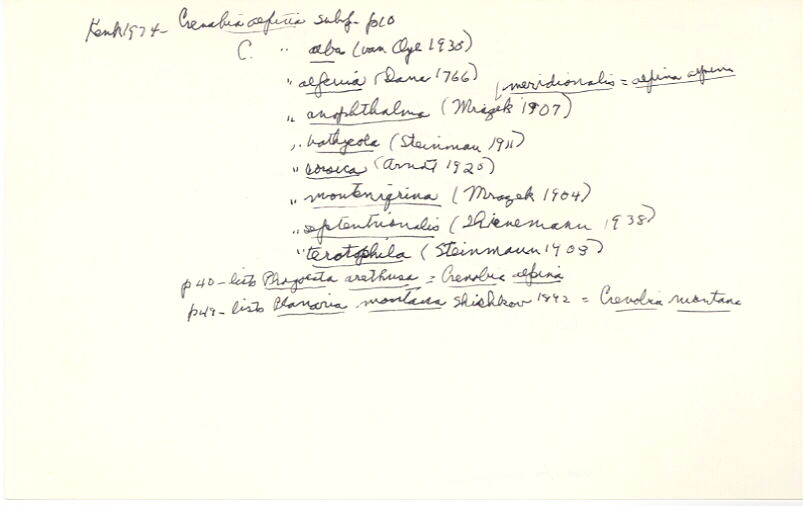 Kenk 1974 - Crenobia alpina subsp. p10
C. " alba (van Oye 1935)
" alpina (Dana 1766)
(meridionalis = alpina alpina
" anophthalma (Mrazek 1907)
" bathycola (Steinman 1911)
" corsica (Arndt 1920)
" montenigrina (Mrazek 1904)
" septentrionalis (Thienemann 1938)
" teratophila (Steinmann 1908)
p40 - lists Phagocata arethusa = Crenobia alpina
p49 - lists Planaria montana Shishkov 1892 = Crenobia montana